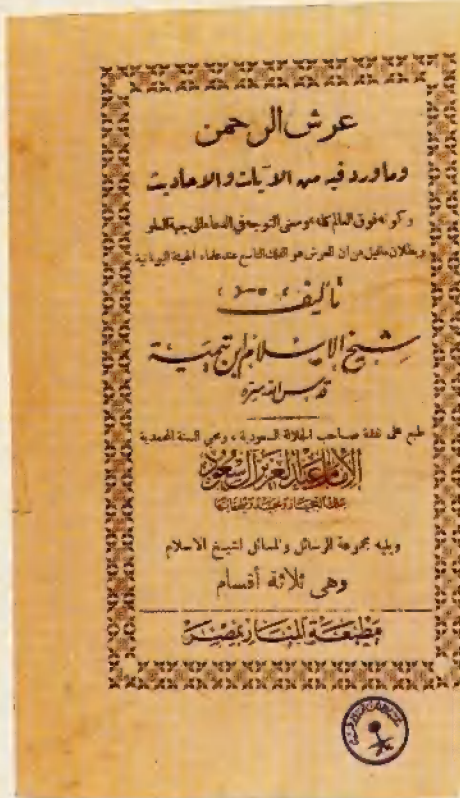 عرش الرحمن
وما ورد فيه من الآيات والاحاديث
وكونه فوق العالم كله ومعنى التوجه في الدعاء الى جهة العلو
وبطلان ماقيل من ان العرش هو الفلك التاسع عند علماء الهيئة اليونانية
تأليف
شيخ الإسلام ابن تيمية
قدس الله سره
طبع على نفقة صاحب الجلالة السعودية ، ومحي السنة المحمدية
الإمام عبد العزيز آل سعود
ملك الحجاز ونجد وملحقاتها
ويليه مجموعة الرسائل والمسائل لشيخ الاسلام
وهي ثلاثة أقسام
مطبعة المنار بمصر